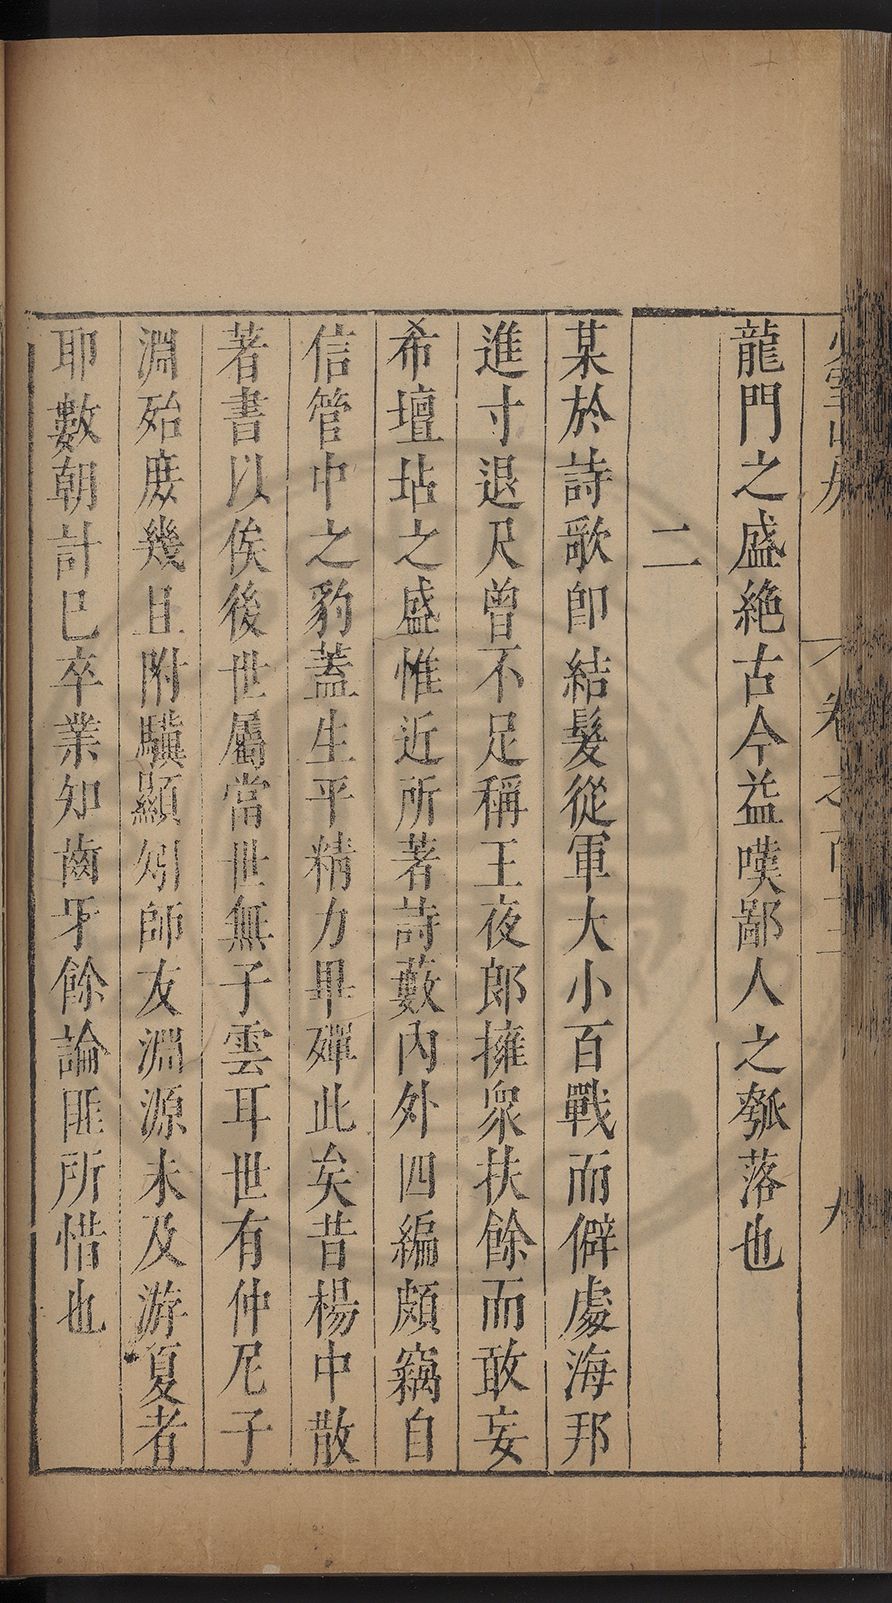 龍門之盛絶古今益嘆鄙人之瓠落也
二
某於詩歌卽結髮從軍大小百戰而僻處海邦
進寸退尺曾不足稱王夜郎擁衆扶餘而敢妄
希壇坫之盛惟近所著詩藪內外四編頗竊自
信管中之豹蓋生平精力畢殫此矣昔楊中散
著書以俟後世屬當世無子雲耳世有仲尼子
淵殆庶幾且附驥顯矧師友淵源未及游夏者
耶數朝計已卒業知齒牙餘論匪所惜也